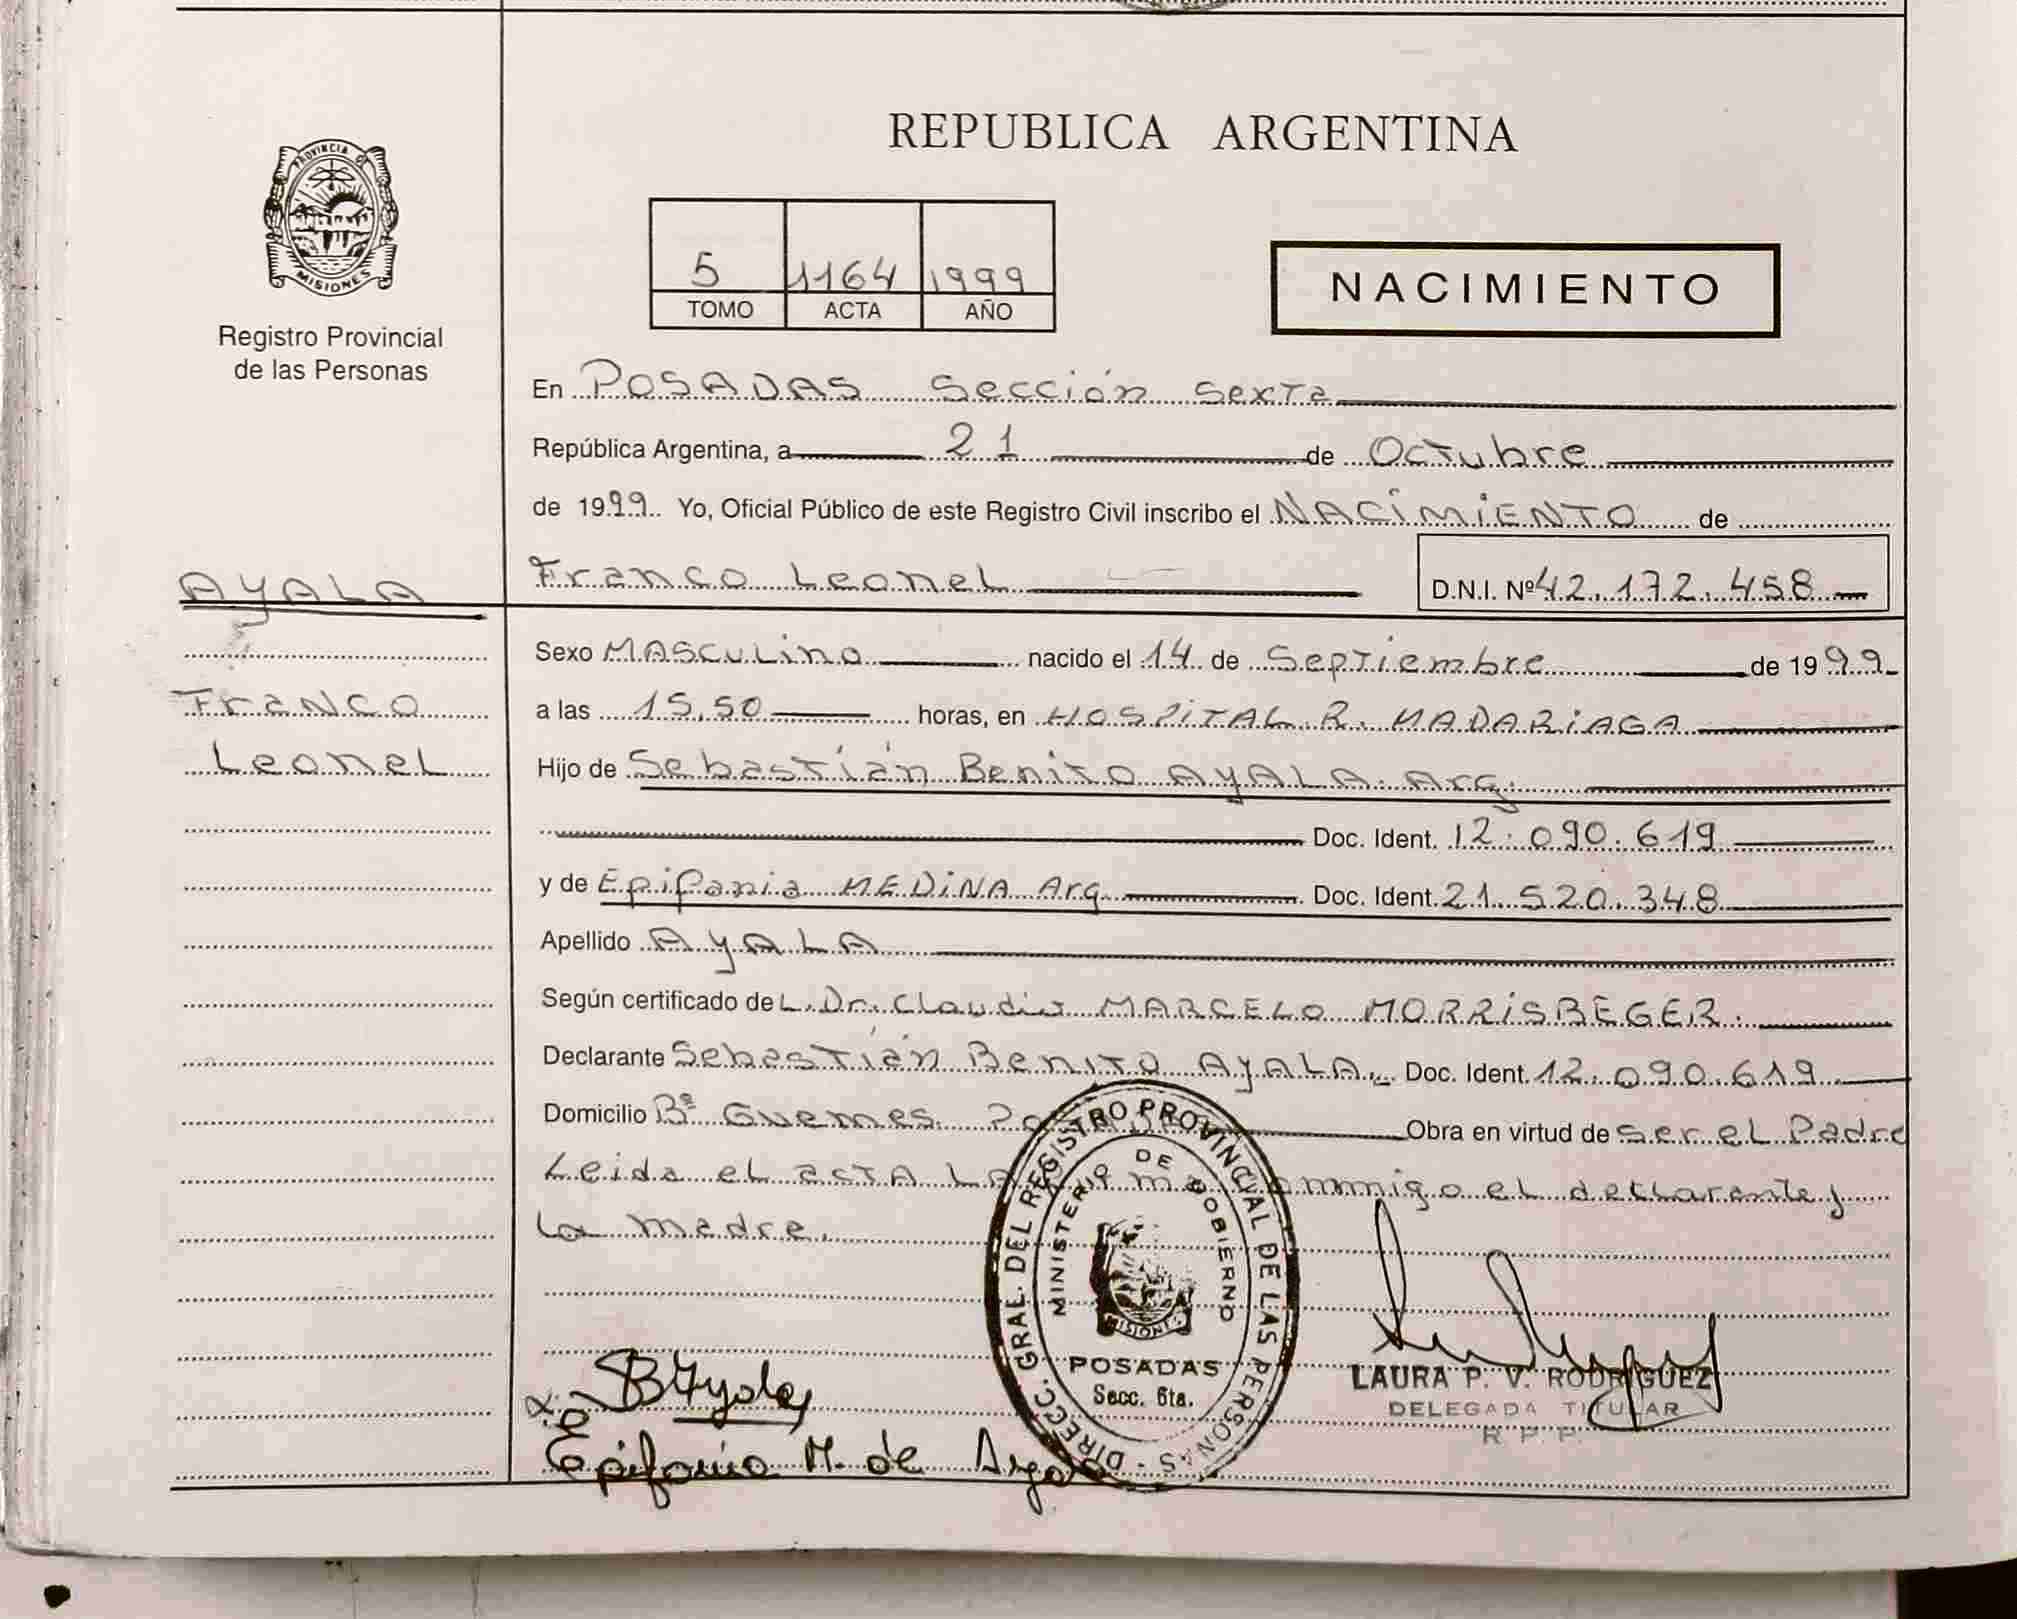 REPUBLICA ARGENTINA
PROVINCIA D
MISIONES
Registro Provincial
de las Personas
5 1164 1999
TOMO ACTA AÑO
NACIMIENTO
En POSADAS Sección Sexta
República Argentina, a 21 de Octubre
de 1999. Yo, Oficial Público de este Registro Civil inscribo el NACIMIENTO de
AYALA
Franco Leonel D.N.I. Nº 42.172.458
Sexo MASCULINO nacido el 14 de Septiembre de 1999
Franco
a las 15,50 horas, en HOSPITAL R. MADARIAGA
Leonel
Hijo de Sebastián Benito AYALA. Arg.
Doc. Ident. 12.090.619
y de Epifania MEDINA Arg. Doc. Ident. 21.520.348
Apellido AYALA
Según certificado de L. Dr. Claudio MARCELO MORRISBEGER.
Declarante Sebastián Benito AYALA. Doc. Ident. 12.090.619
Domicilio Bº Guemes Obra en virtud de ser el Padre
Leida el acta La el declarante y
la madre.
DIRECC. GRAL. DEL REGISTRO PROVINCIAL DE LAS PERSONAS
MINISTERIO DE GOBIERNO
MISIONES
POSADAS
Secc. 6ta.
LAURA P. V. RODRIGUEZ
DELEGADA TITULAR
R P P
B Ayala
Epifania M. de Ayala